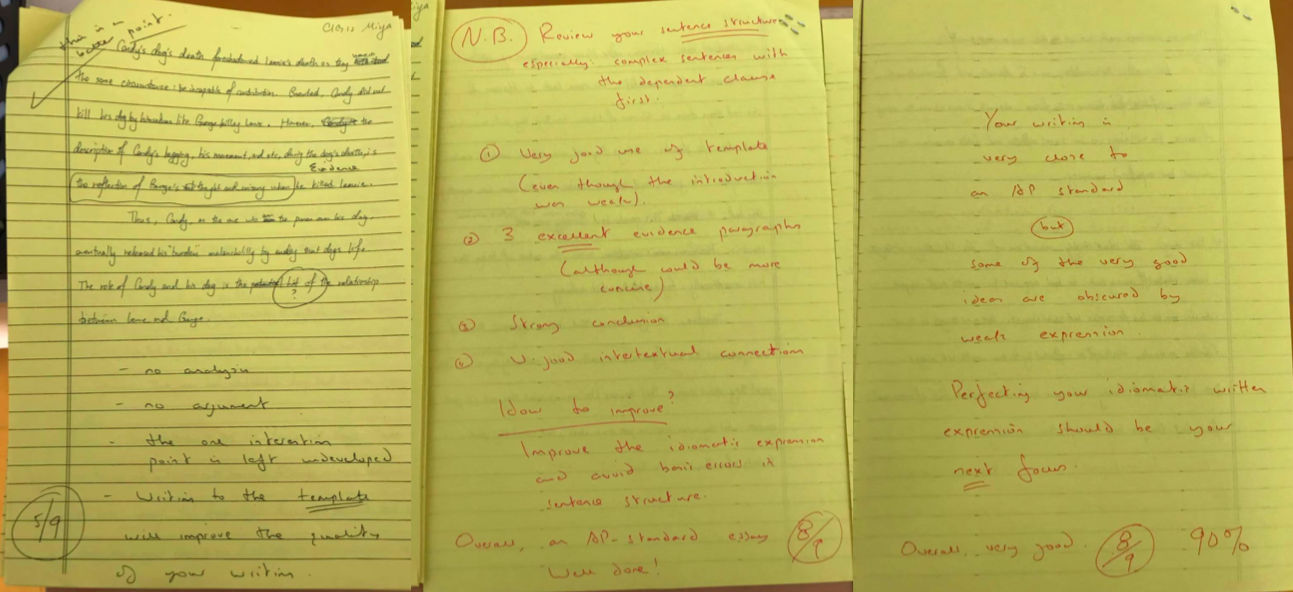 this is a
better point.
Class Miya
Candy's dog's death foreshadowed Lennie's death as they
the same circumstance: be incapable of contribution. Granted, Candy did not
kill his dog by himself like George killing Lennie. However, the
description of Candy's begging, his movement, and etc, during the dog's death, is
Evidence
the reflection of George's thought and when he killed Lennie.
Thus, Candy, as the one who the power over his dog,
eventually released his "burden" by ending that dog's life.
The role of Candy and his dog is the of the relationship
?
between Lennie and George.
- no analysis
- no argument
- the one interesting
point is left undeveloped
- Writing to the template
will improve the quality
of your writing.
5/9
iya
N.B. Review your sentence structure
especially: complex sentences with
the dependent clause
first.
① Very good use of template
(even though the introduction
was weak).
② 3 excellent evidence paragraphs
(although could be more
concise)
③ Strong conclusion
④ V. good intertextual connections
How to improve?
Improve the idiomatic expression
and avoid basic errors in
sentence structure.
Overall, an AP-standard essay
Well done!
8/9
Your writing is
very close to
an AP standard
but
some of the very good
ideas are obscured by
weak expression.
Perfecting your idiomatic written
expression should be your
next focus.
Overall, very good. 8/9 90%